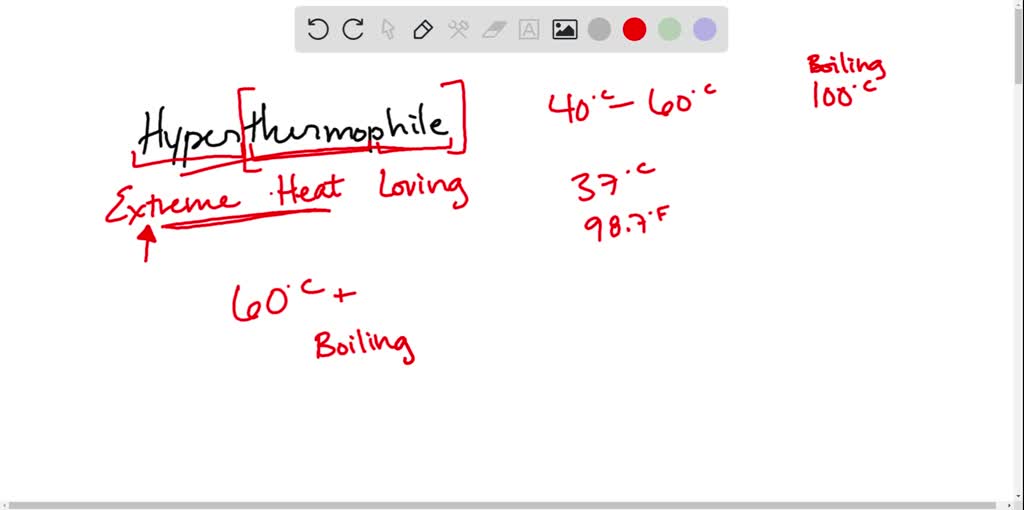 Hyperthermophile
Extreme Heat Loving
60°C +
Boiling
40°C - 60°C
37°C
98.7°F
Boiling
100°C